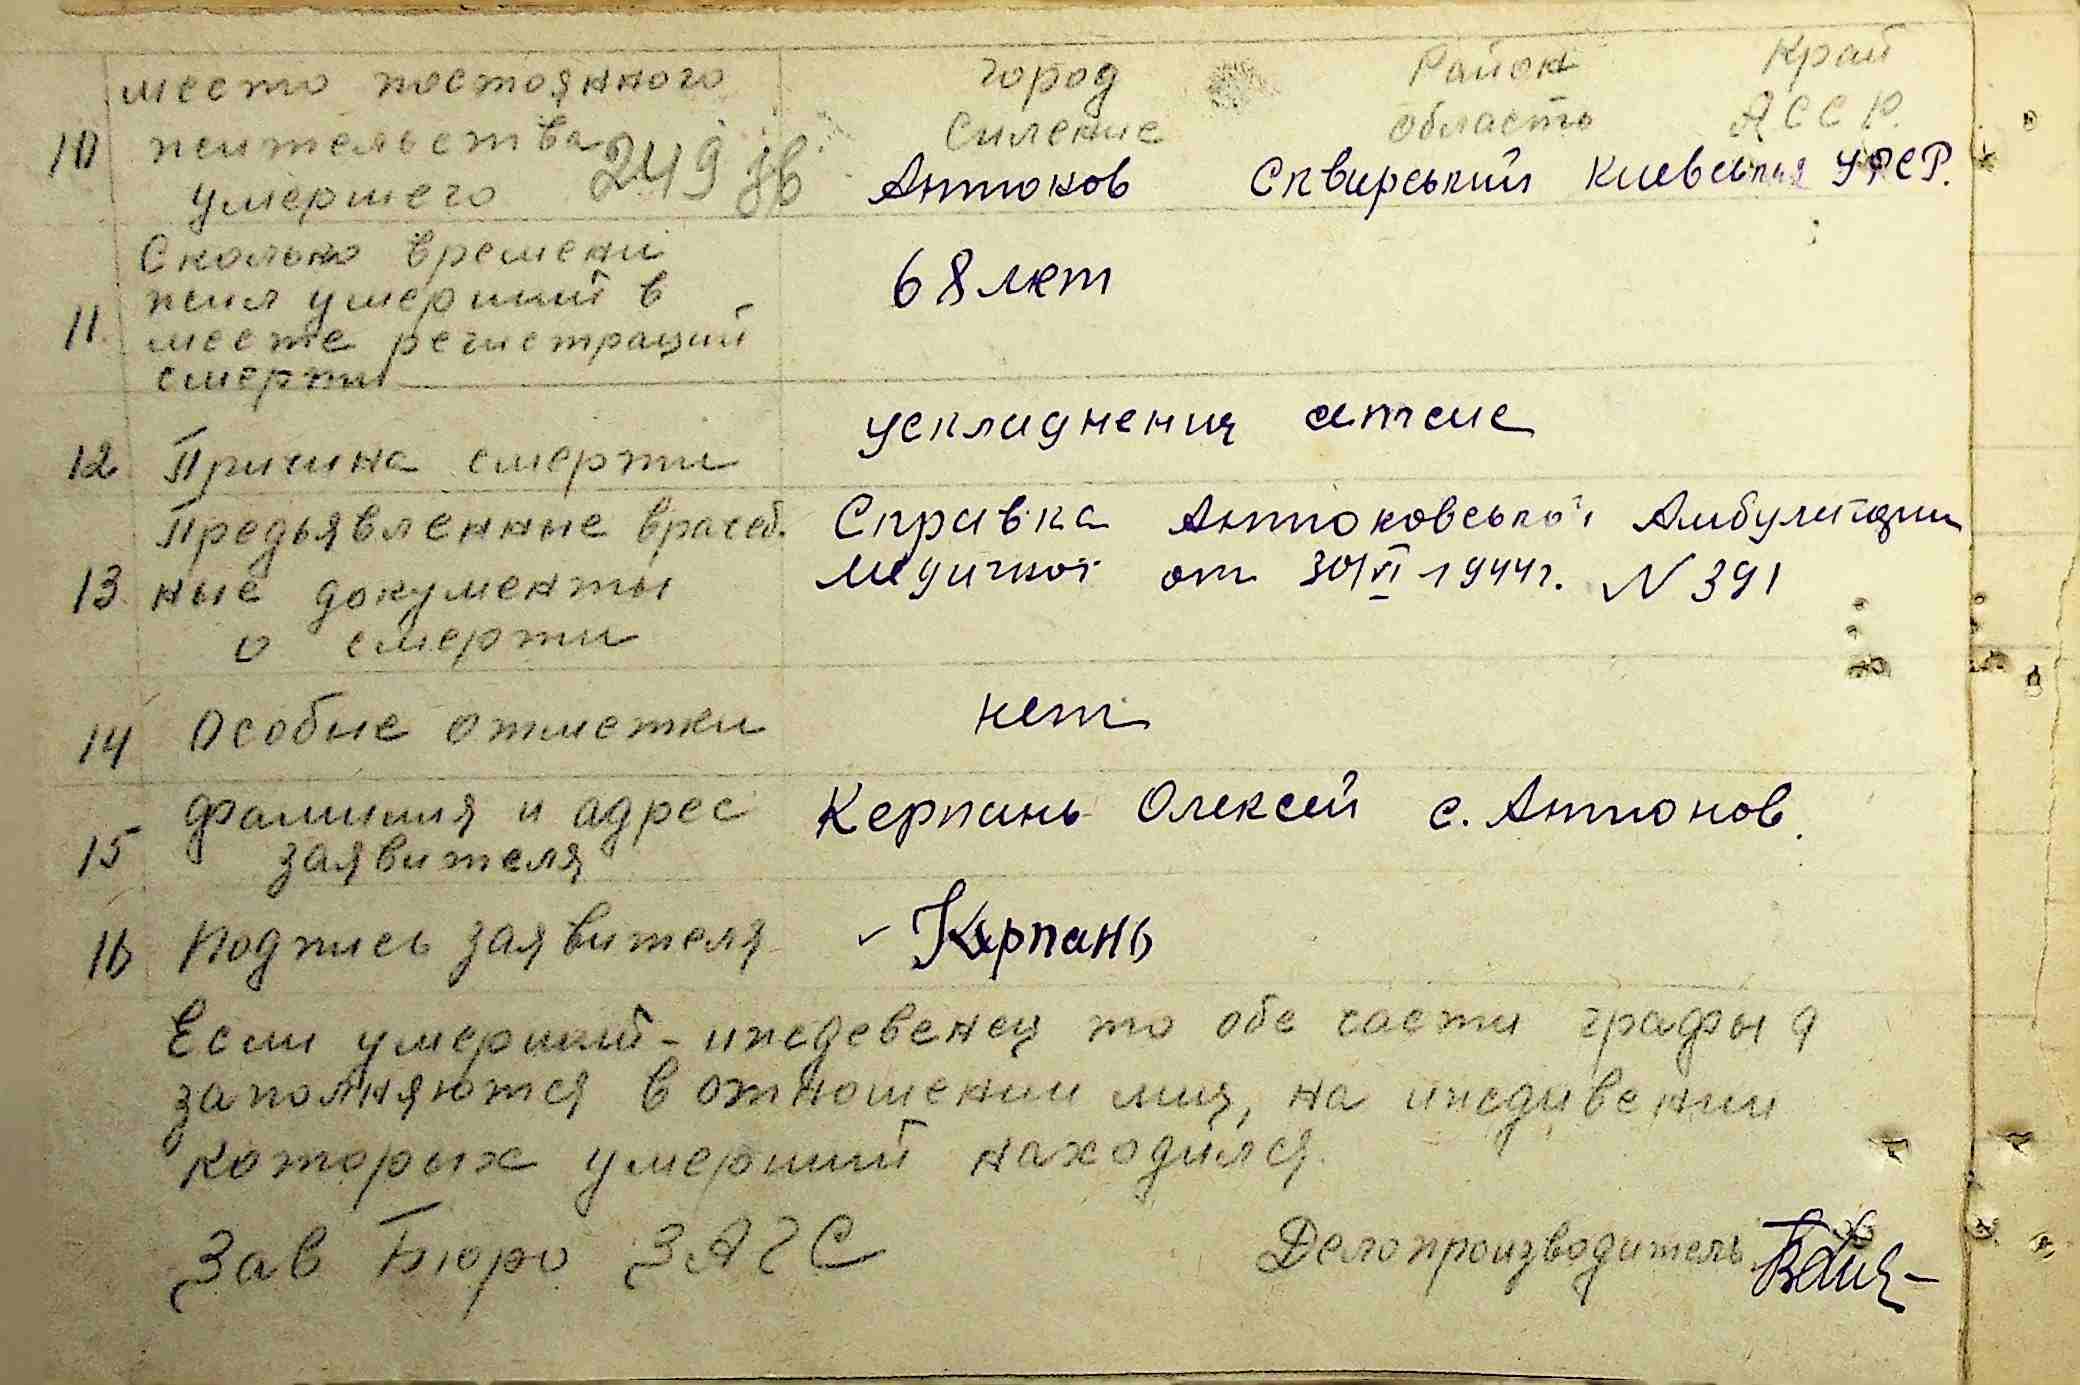 место постоянного город Район Край
10 жительства 249 Силение область АССР.
умершего Антонов Сквирський Киевська УРСР.
Сколько времени
жил умерший в 68 лет
11. месте регистраций
смерти
ускладнения
12 Причина смерти
Предьявленные врачеб. Справка Антоновської Амбулатории
13. ные документы медичної от 30/VI 1944 г. N 391
о смерти
14 Особые отметки нет
15 фамилия и адрес Керпань Олексей с. Антонов.
заявителя
16 Подпись заявителя Керпань
Если умерший - иждевенец то обе части графы 9
заполняются в отношении лиц, на иждивении
которых умерший находился.
Зав Бюро ЗАГС Делопроизводитель